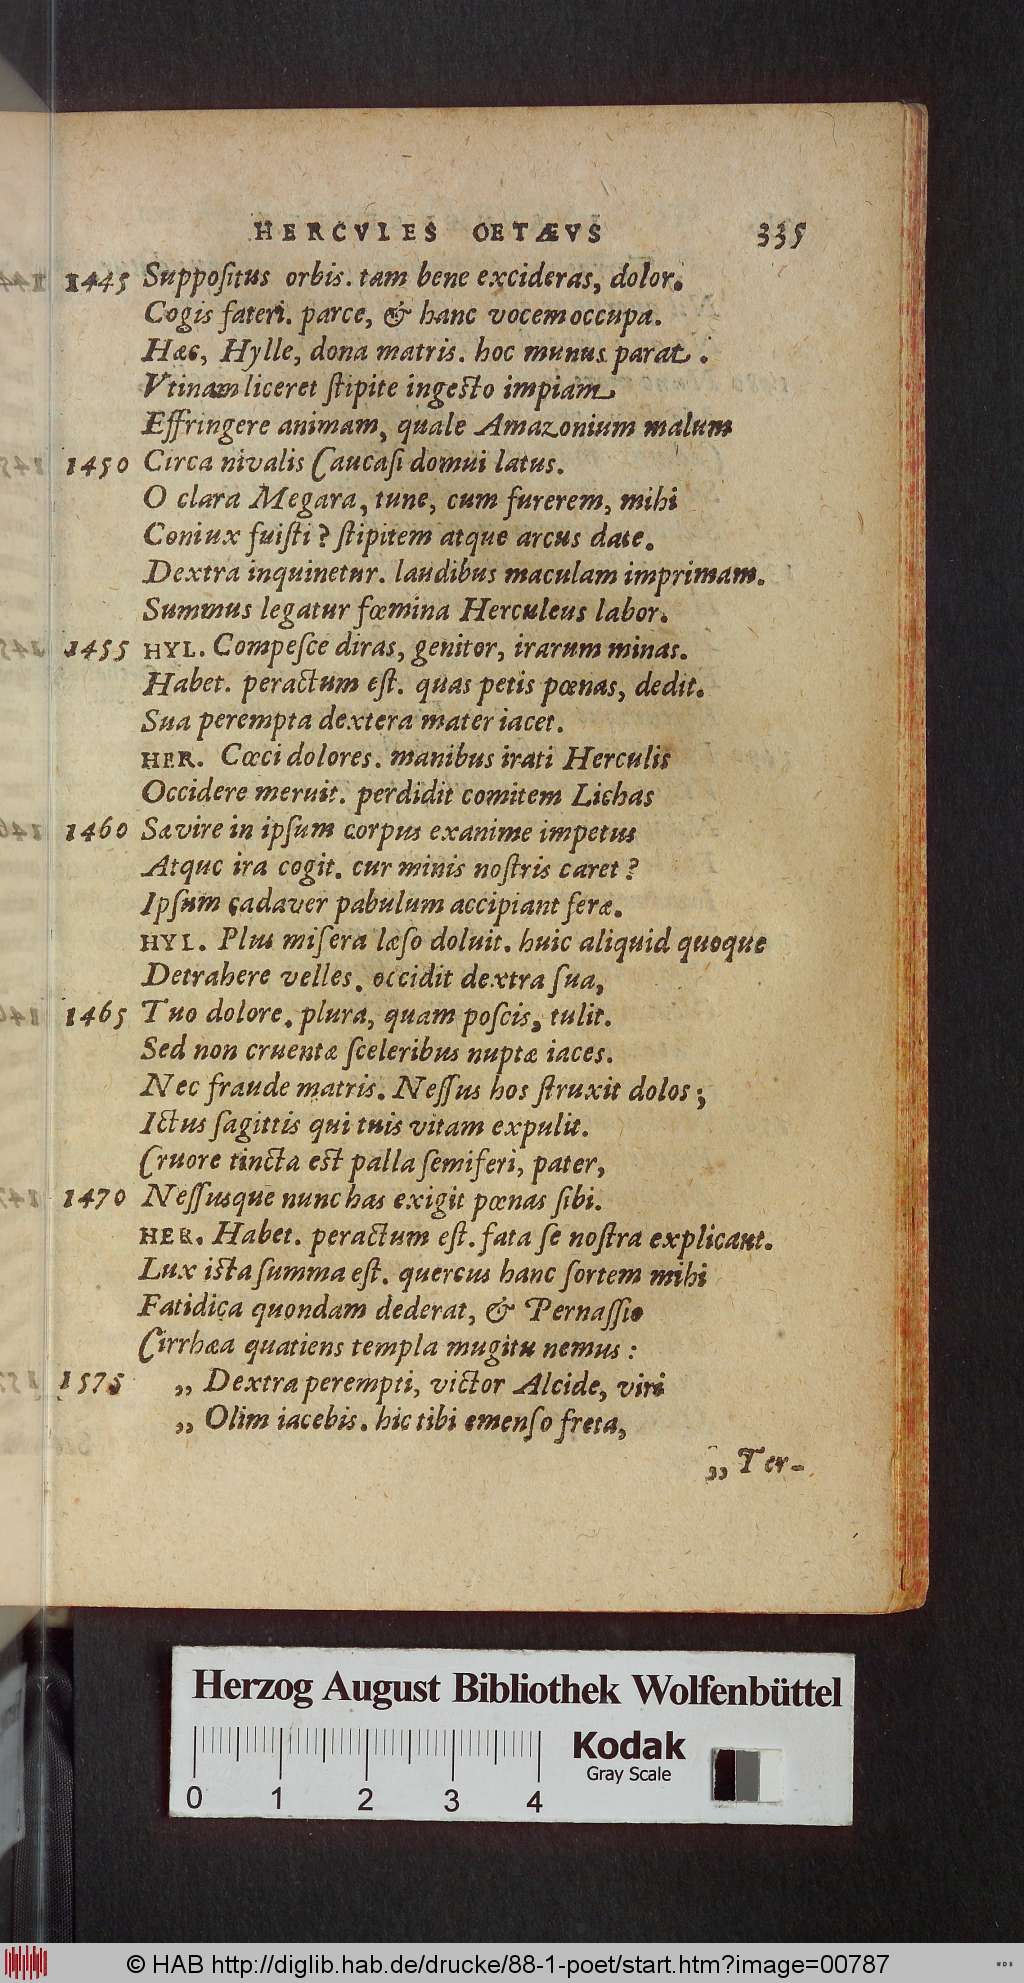 HERCVLES OETÆVS 335
1445 Suppoſitus orbis. tam bene excideras, dolor.
Cogis fateri. parce, & hanc vocem occupa.
Hæc, Hylle, dona matris. hoc munus parat.
Vtinam liceret ſtipite ingeſto impiam
Effringere animam, quale Amazonium malum
1450 Circa nivalis Caucaſi domui latus.
O clara Megara, tune, cum furerem, mihi
Coniux fuiſti? ſtipitem atque arcus date.
Dextra inquinetur. laudibus maculam imprimam.
Summus legatur fœmina Herculeus labor.
1455 HYL. Compeſce diras, genitor, irarum minas.
Habet. peractum eſt. quas petis pœnas, dedit.
Sua perempta dextera mater iacet.
HER. Cœci dolores. manibus irati Herculis
Occidere meruit. perdidit comitem Lichas
1460 Sævire in ipſum corpus exanime impetus
Atque ira cogit. cur minis noſtris caret?
Ipſum cadaver pabulum accipiant feræ.
HYL. Plus miſera læſo doluit. huic aliquid quoque
Detrahere velles. occidit dextra ſua,
1465 Tuo dolore. plura, quam poſcis, tulit.
Sed non cruentæ ſceleribus nuptæ iaces.
Nec fraude matris. Neſſus hos ſtruxit dolos;
Ictus ſagittis qui tuis vitam expulit.
Cruore tincta eſt palla ſemiferi, pater,
1470 Neſſusque nunc has exigit pœnas ſibi.
HER. Habet. peractum eſt. fata ſe noſtra explicant.
Lux iſta ſumma eſt. quercus hanc ſortem mihi
Fatidica quondam dederat, & Pernaſſio
Cirrhæa quatiens templa mugitu nemus:
1575 „ Dextra perempti, victor Alcide, viri
„ Olim iacebis. hic tibi emenſo freta,
„ Ter-
Herzog August Bibliothek Wolfenbüttel
Kodak
Gray Scale
0 1 2 3 4
© HAB http://diglib.hab.de/drucke/88-1-poet/start.htm?image=00787